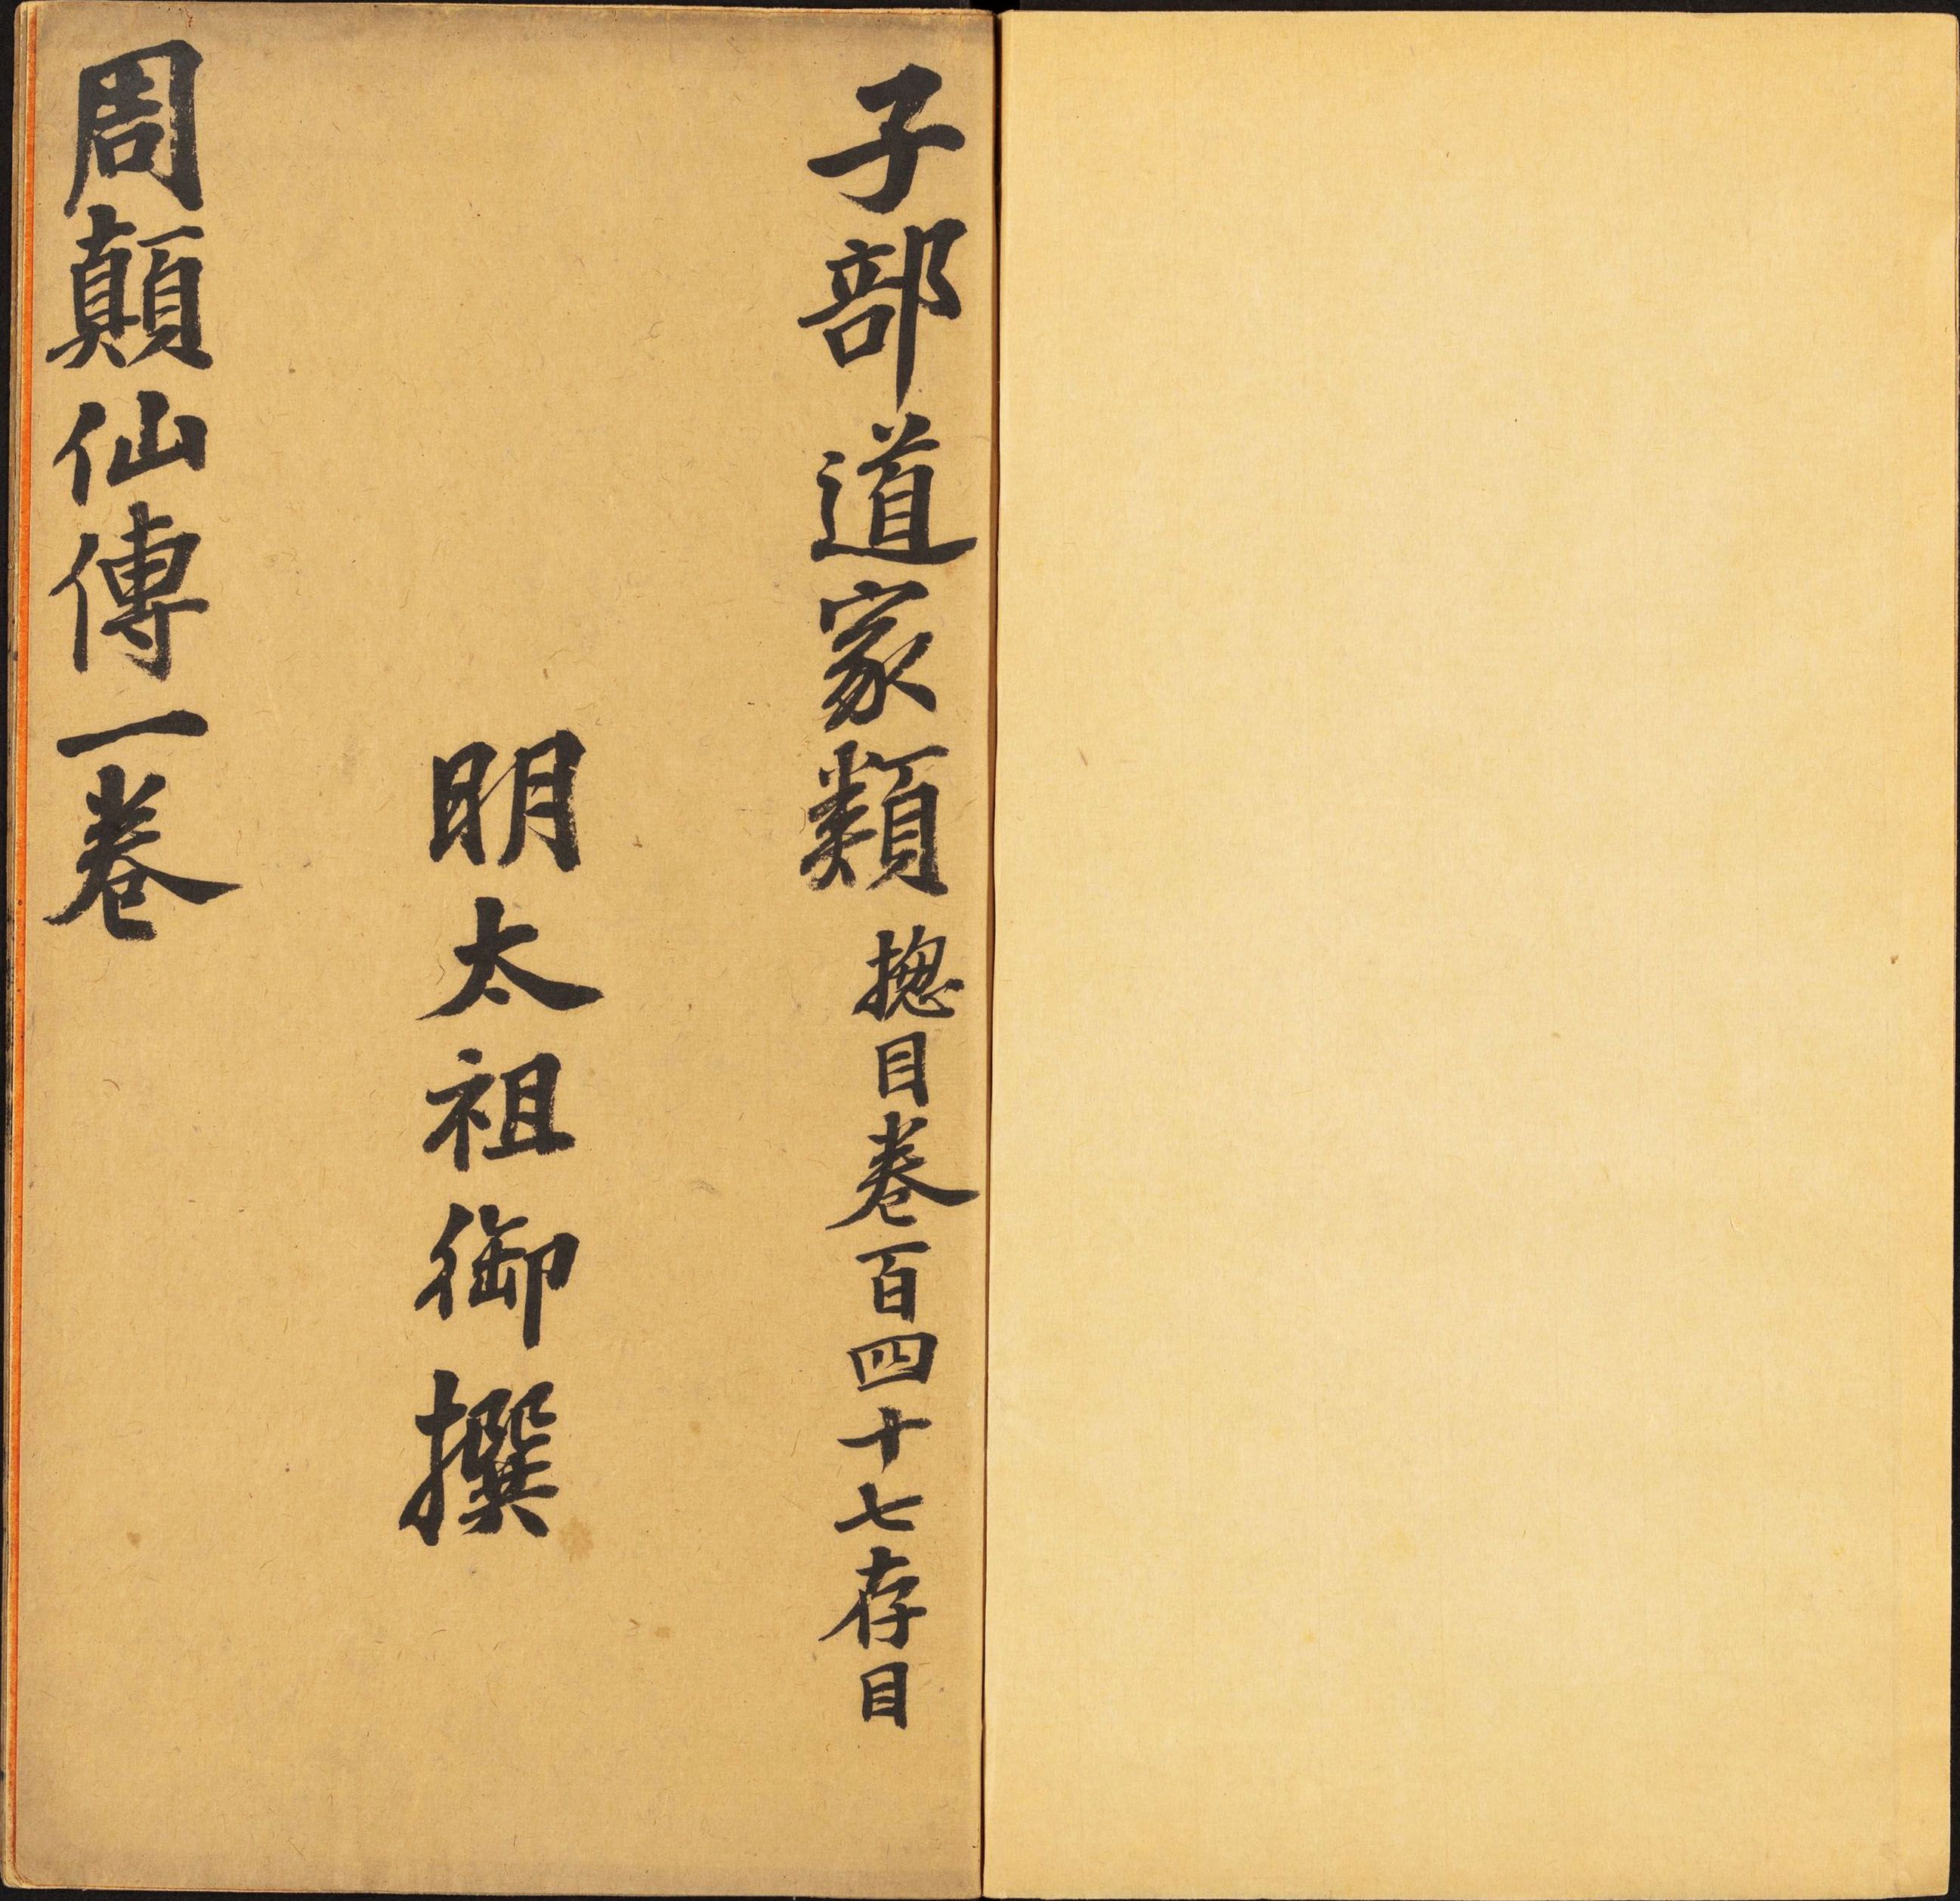 子部道家類 揔目卷百四十七存目
明太祖御撰
周顛仙傳一卷